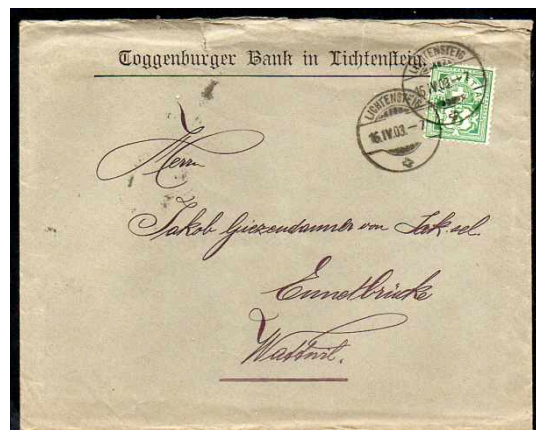 Toggenburger Bank in Lichtensteig.
LICHTENSTEIG
16.IV.03.-7
LICHTENSTEIG
16.IV.03.-7
Herrn
Jakob Giezendanner von Jak. sel.
Ennetbrücke
Wattwil.